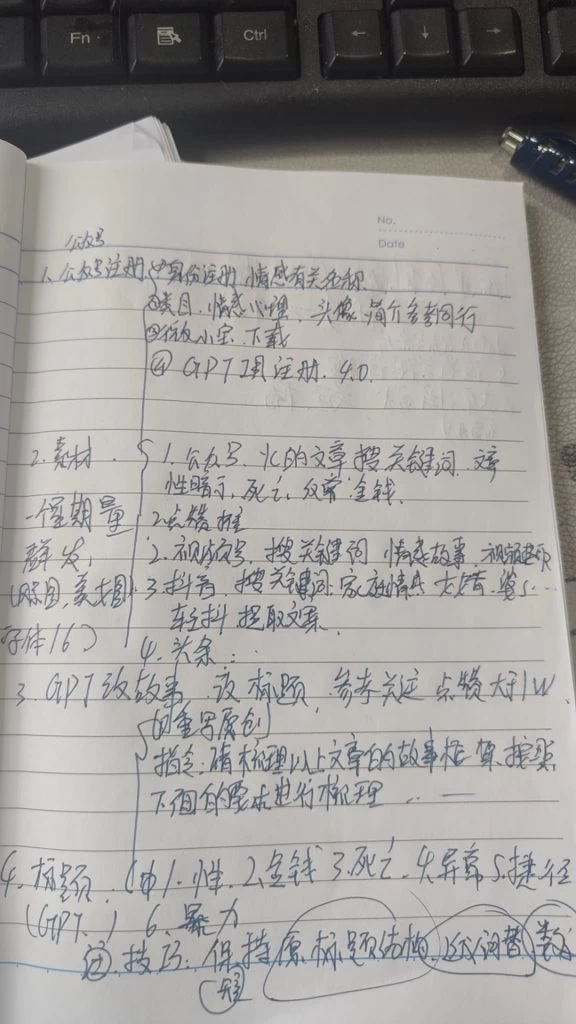 Fn
Ctrl
←
↓
→
No.
Date
公众号
1. 公众号注册 ①身份注册 情感有关名称
②类目, 情感心理, 头像 简介参考同行
下载
④ GPT 注册. 4.0
2. 素材
1. 公众号. 的文章 搜关键词
性暗示, 死亡, 金钱.
一个星期量
2. 点赞
群发,
2. 视频号, 搜关键词 情感故事
3. 抖音, 搜关键词 家庭情
字体16)
轻抖 提取文案
4. 头条:
3. GPT改故事 改标题, 参考关注 点赞大于1W
重写原创
指令: 请梳理以上文章的故事框架 按照
下面的要求进行梳理
4. 标题. 1. 性. 2. 金钱 3. 死亡 4. 异常 5. 捷径
(GPT.) 6. 暴力
技巧: 保持原标题结构 词替